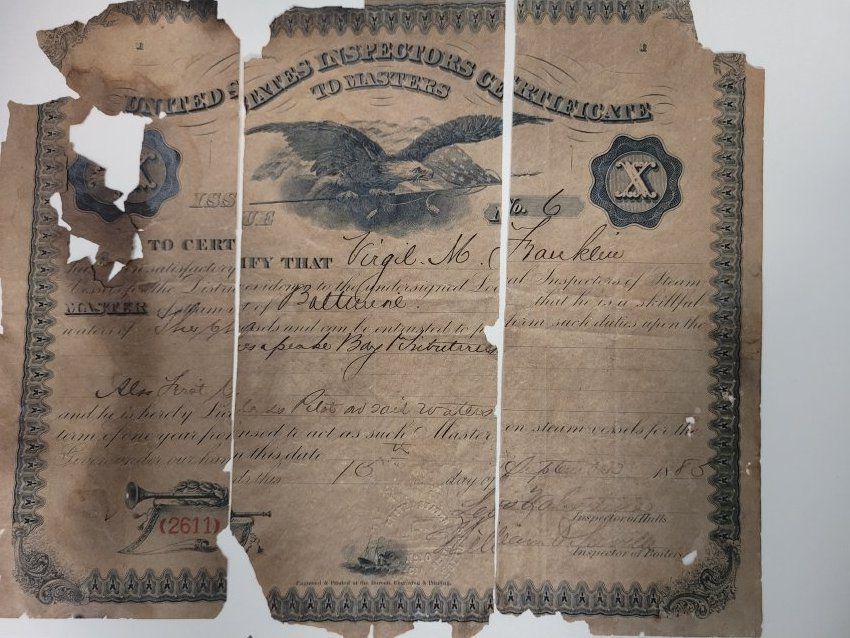 UNITED STATES INSPECTORS CERTIFICATE
TO MASTERS
X X
ISSUE No. 6
TO CERTIFY THAT Virgil M. Franklin
satisfactory evidence to the undersigned Local Inspectors of Steam
Vessels for the District of Baltimore that he is a skillful
MASTER of steam and can be entrusted to perform such duties upon the
waters of Chesapeake Bay & Tributaries
Also First Class Pilot on said waters
and he is hereby Licensed to act as such Master on steam vessels for the
term of one year from this date
Given under our hands this 15th day of September 1885
Inspector of Hulls
William
Inspector of Boilers
(2611)
Engraved & Printed at the Bureau, Engraving & Printing.